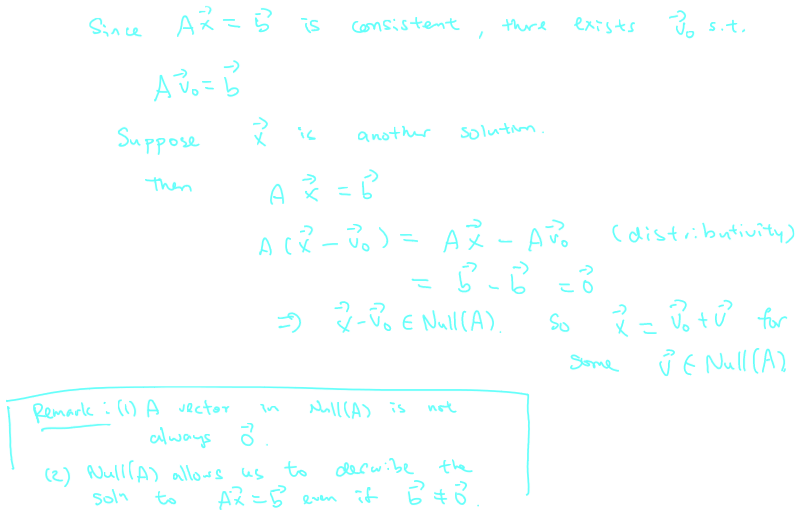 Since Ax⃗ = b⃗ is consistent, there exists v⃗₀ s.t.
Av⃗₀ = b⃗
Suppose x⃗ is another solution.
Then A x⃗ = b⃗
A(x⃗ - v⃗₀) = Ax⃗ - Av⃗₀ (distributivity)
= b⃗ - b⃗ = 0⃗
⇒ x⃗ - v⃗₀ ∈ Null(A). So x⃗ = v⃗₀ + v⃗ for
some v⃗ ∈ Null(A)
Remark: (1) A vector in Null(A) is not
always 0⃗.
(2) Null(A) allows us to describe the
soln to Ax⃗ = b⃗ even if b⃗ ≠ 0⃗.